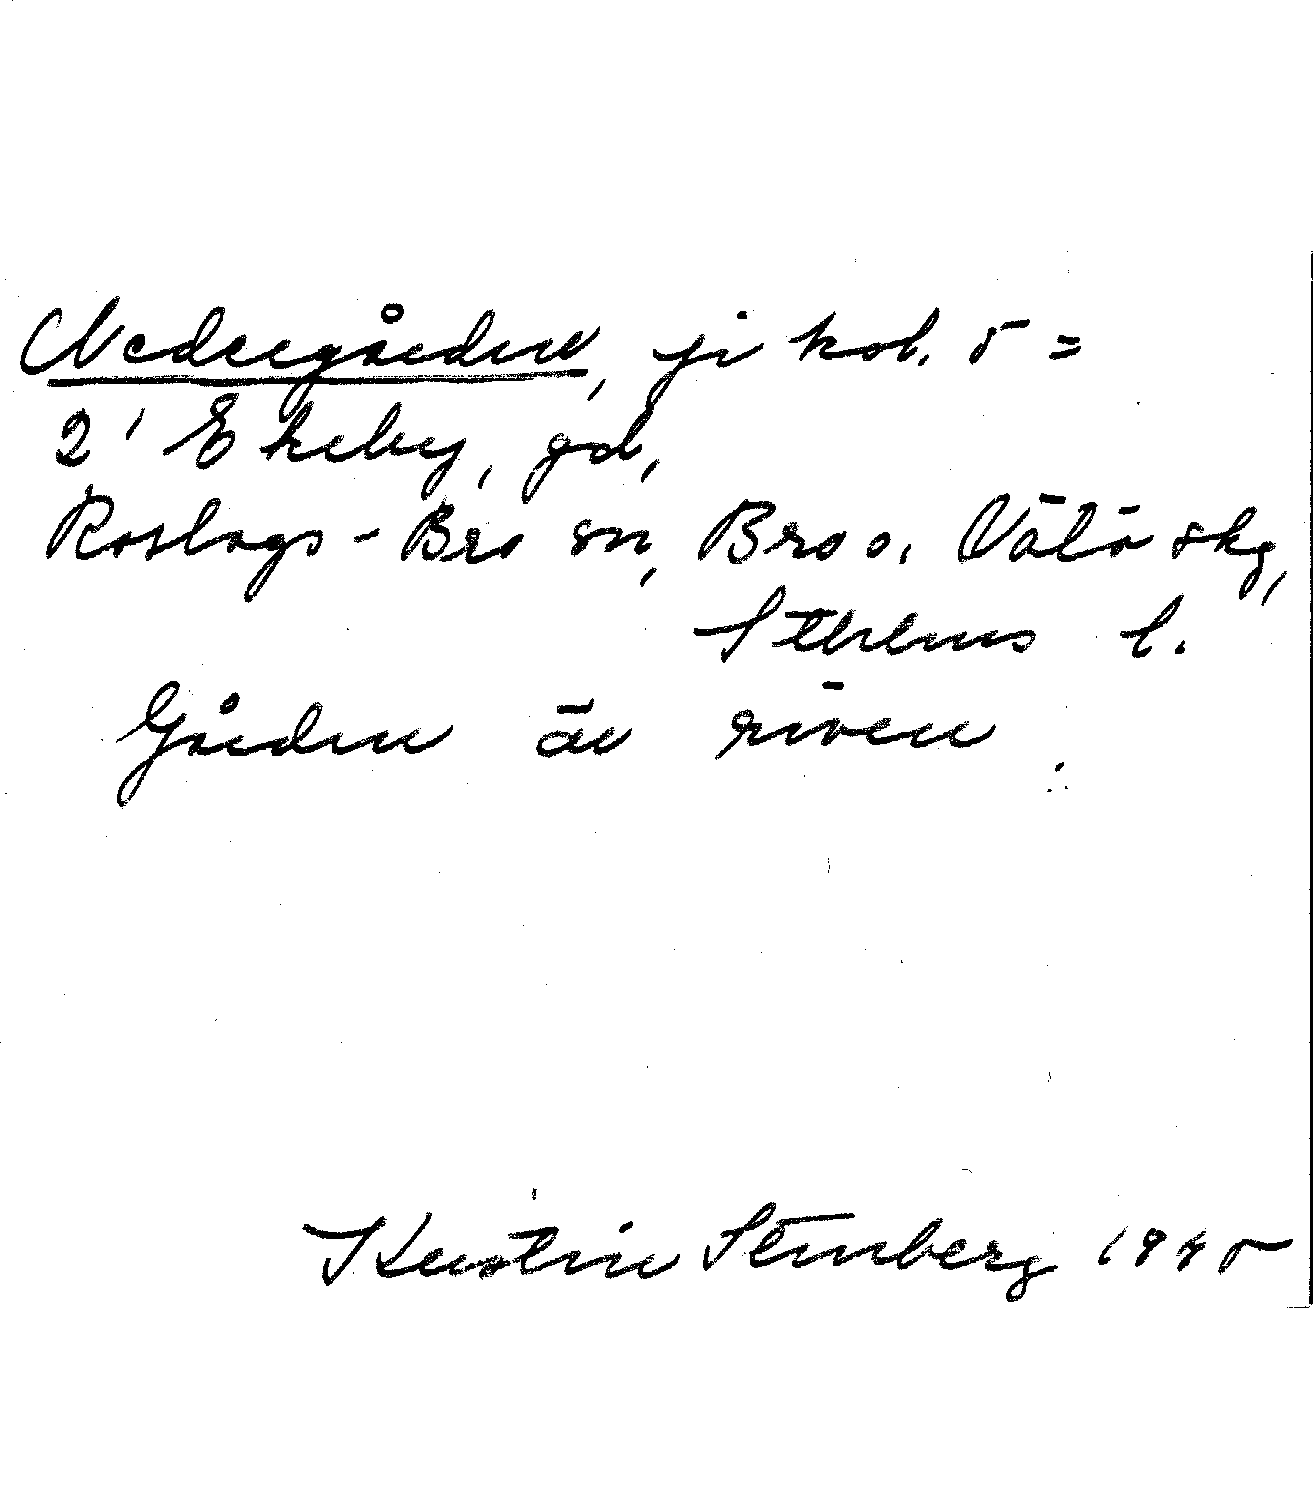 Nedergården, ji kol. 5 =
2' Ekeby, gd,
Roslags-Bro sn, Bro o. Vätö skg,
Sthlms l.
Gården är riven.
Kerstin Stenberg 1945